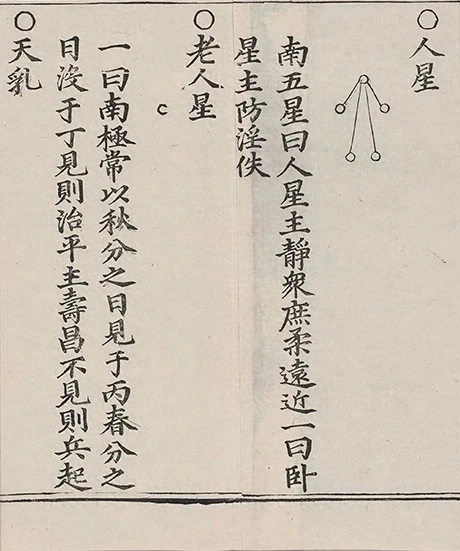 ○人星
南五星曰人星主靜衆庶柔遠近一曰卧
星主防淫佚
○老人星
一曰南極常以秋分之日見于丙春分之
日沒于丁見則治平主壽昌不見則兵起
○天乳